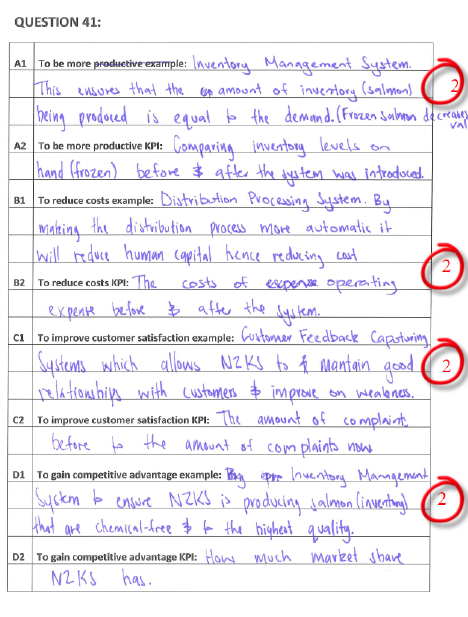 QUESTION 41:
A1 To be more productive example: Inventory Management System.
This ensures that the amount of inventory (salmon) 2
being produced is equal to the demand. (Frozen Salmon decreases
val
A2 To be more productive KPI: Comparing inventory levels on
hand (frozen) before & after the system was introduced.
B1 To reduce costs example: Distribution Processing System. By
making the distribution process more automatic it
will reduce human capital hence reducing cost 2
B2 To reduce costs KPI: The costs of expense operating
expense before & after the system.
C1 To improve customer satisfaction example: Customer Feedback Capturing
Systems which allows NZKS to mantain good 2
relationships with customers & improve on weakness.
C2 To improve customer satisfaction KPI: The amount of complaint
before to the amount of complaints now
D1 To gain competitive advantage example: Inventory Management
System to ensure NZKS is producing salmon (inventory) 2
that are chemical-free & to the highest quality.
D2 To gain competitive advantage KPI: How much market share
NZKS has.